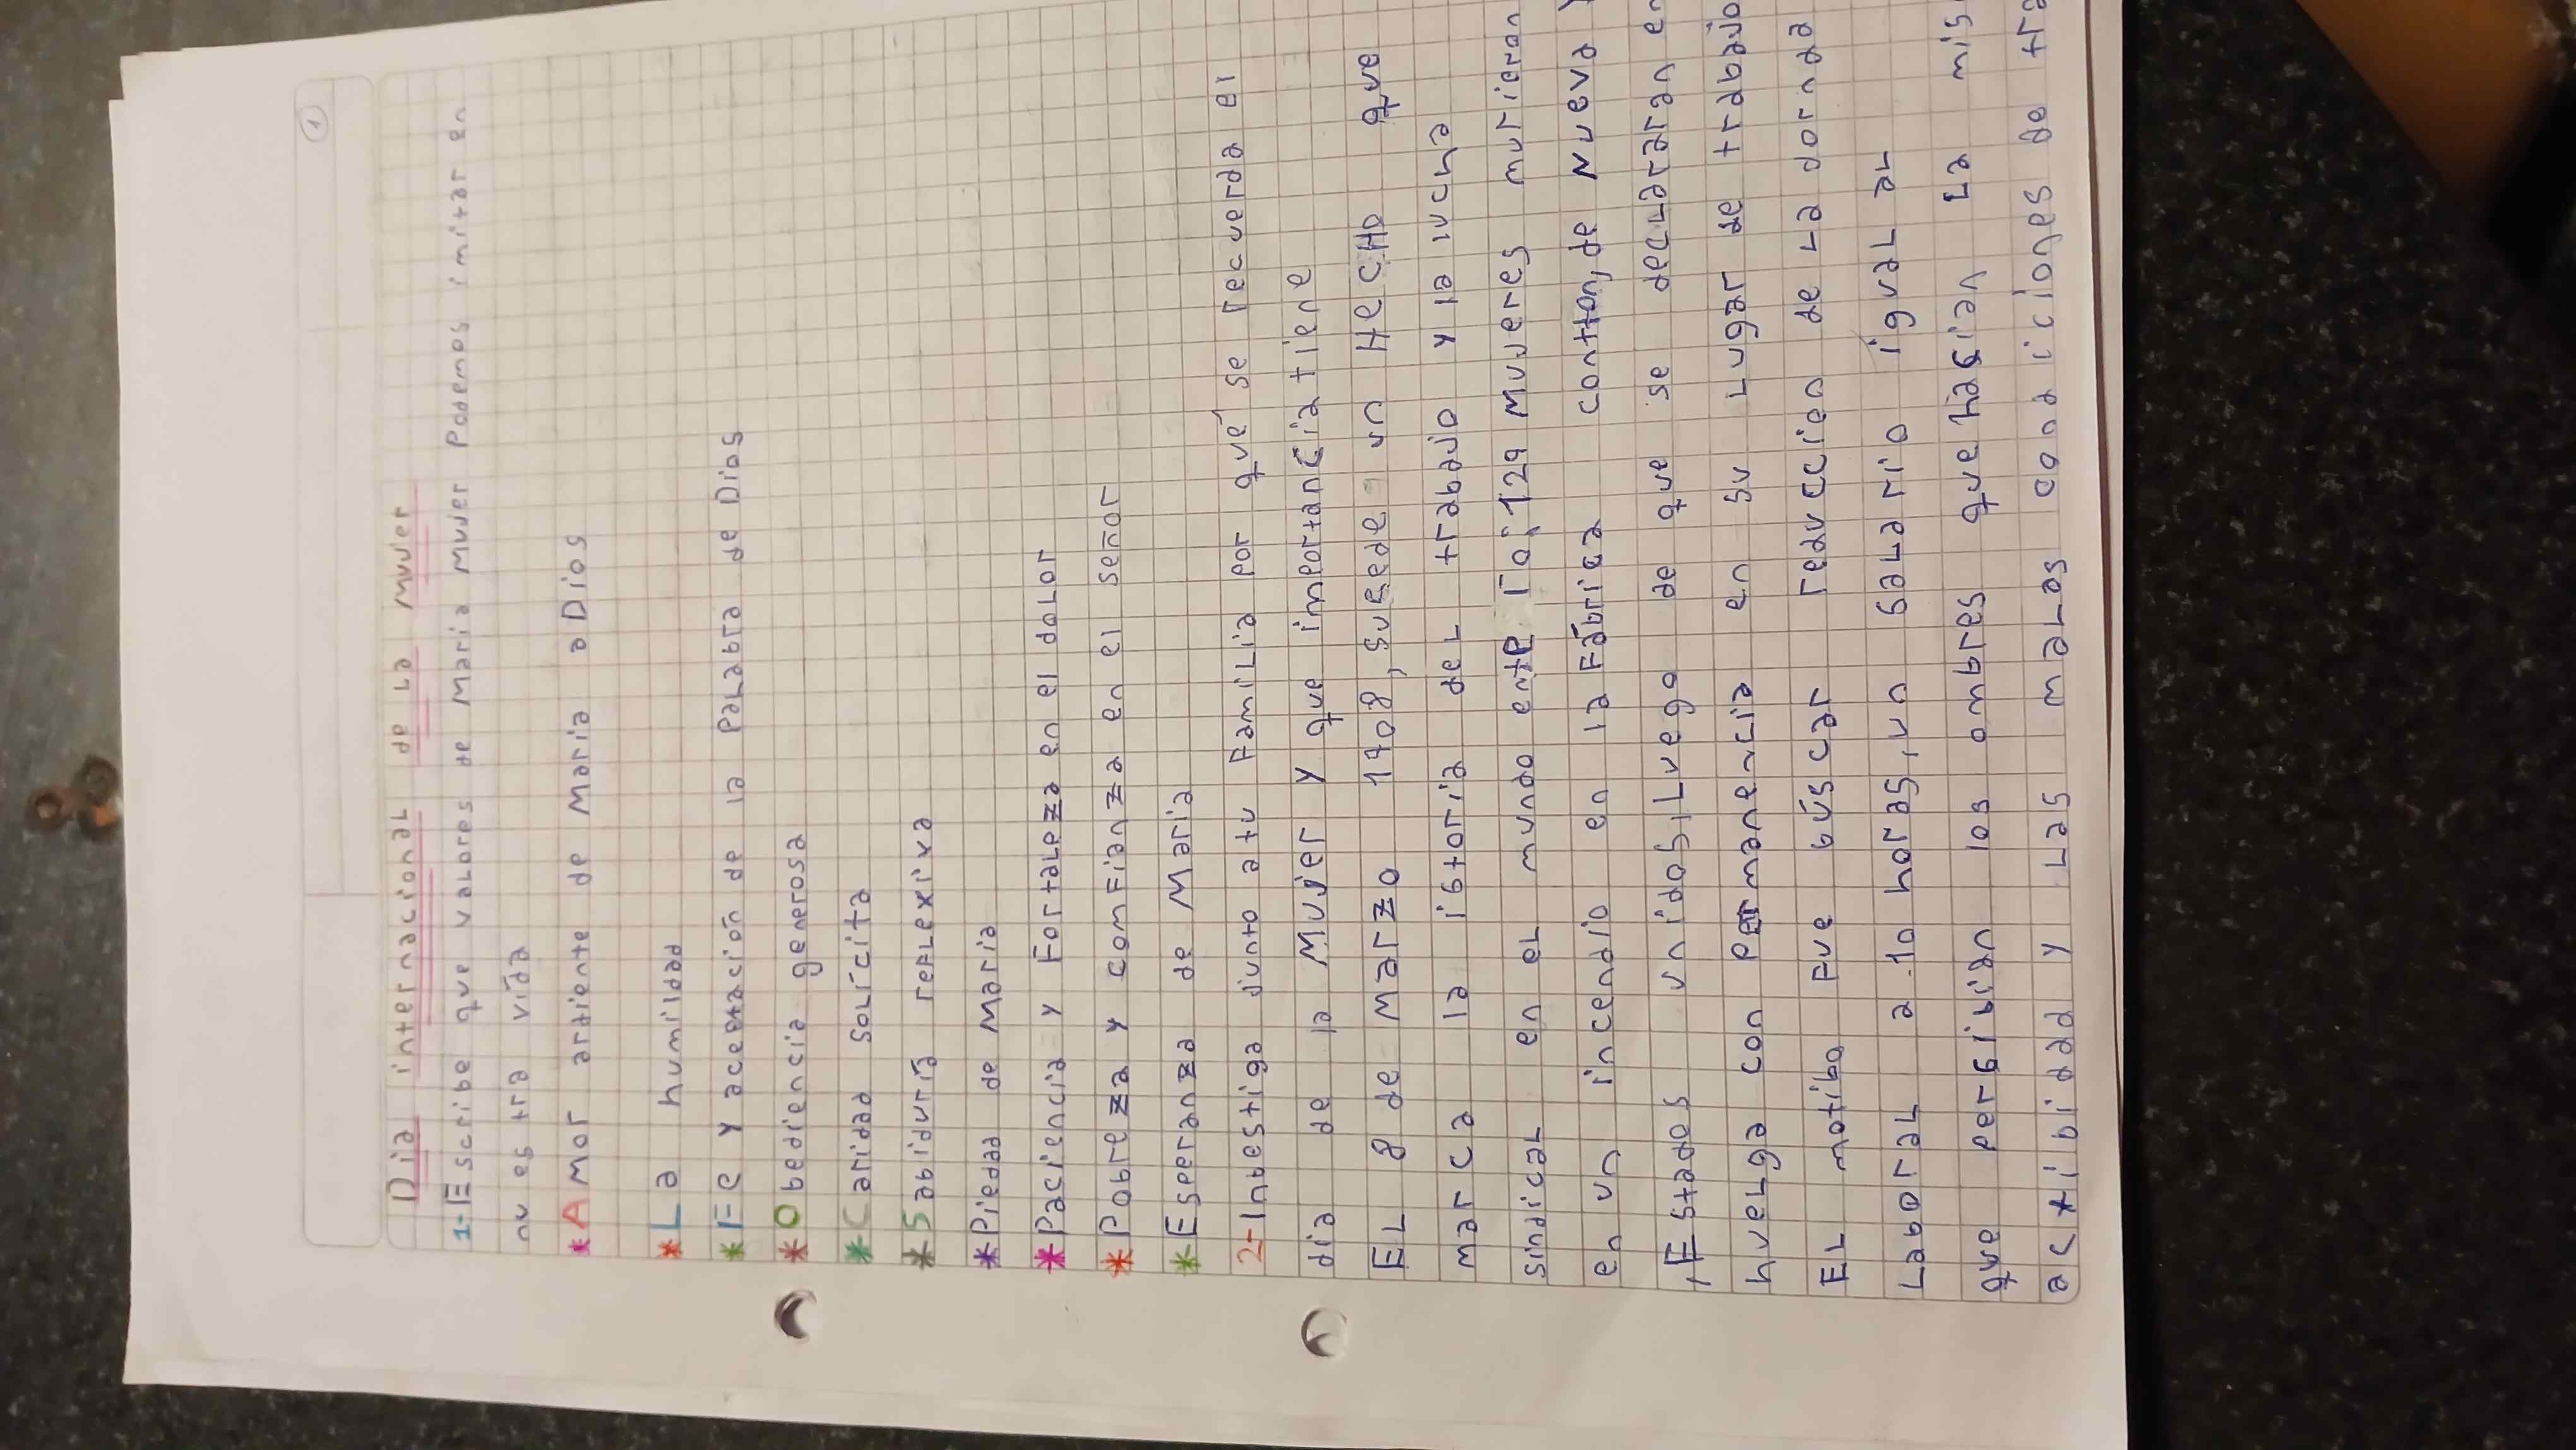 1
Dia internacional de La muJer
1-Escribe que valores de Maria muJer Podemos imitar en
nuestra vida
*Amor ardiente de Maria a Dios
*La humildad
*Fe y aceptación de la Palabra de Dios
*Obediencia generosa
*Caridad solícita
*Sabiduría reflexiva
*Piedad de Maria
*Paciencia y Fortaleza en el dolor
*Pobreza y comfianza en el señor
*Esperanza de Maria
2-Inbestiga Junto a tu Familia por qué se recuerda el
dia de la MuJer y que importancia tiene
EL 8 de Marzo 1908, suesede un HecHo que
marca la istoria del trabaJo y la lucha
sindical en el mundo ente ro; 129 MuJeres murieron
en un incendio en la Fábrica Contton, de Nueva Y
,Estados Unidos, Luego de que se declararan en
huelga con permanencia en su lugar de trabaJo
EL motibo Fue búscar reducción de La Jornda
Laboral a 10 horas, un salario igual al
que persibían los ombres que hasían La mis
actibidad y Las malas condiciones de tra